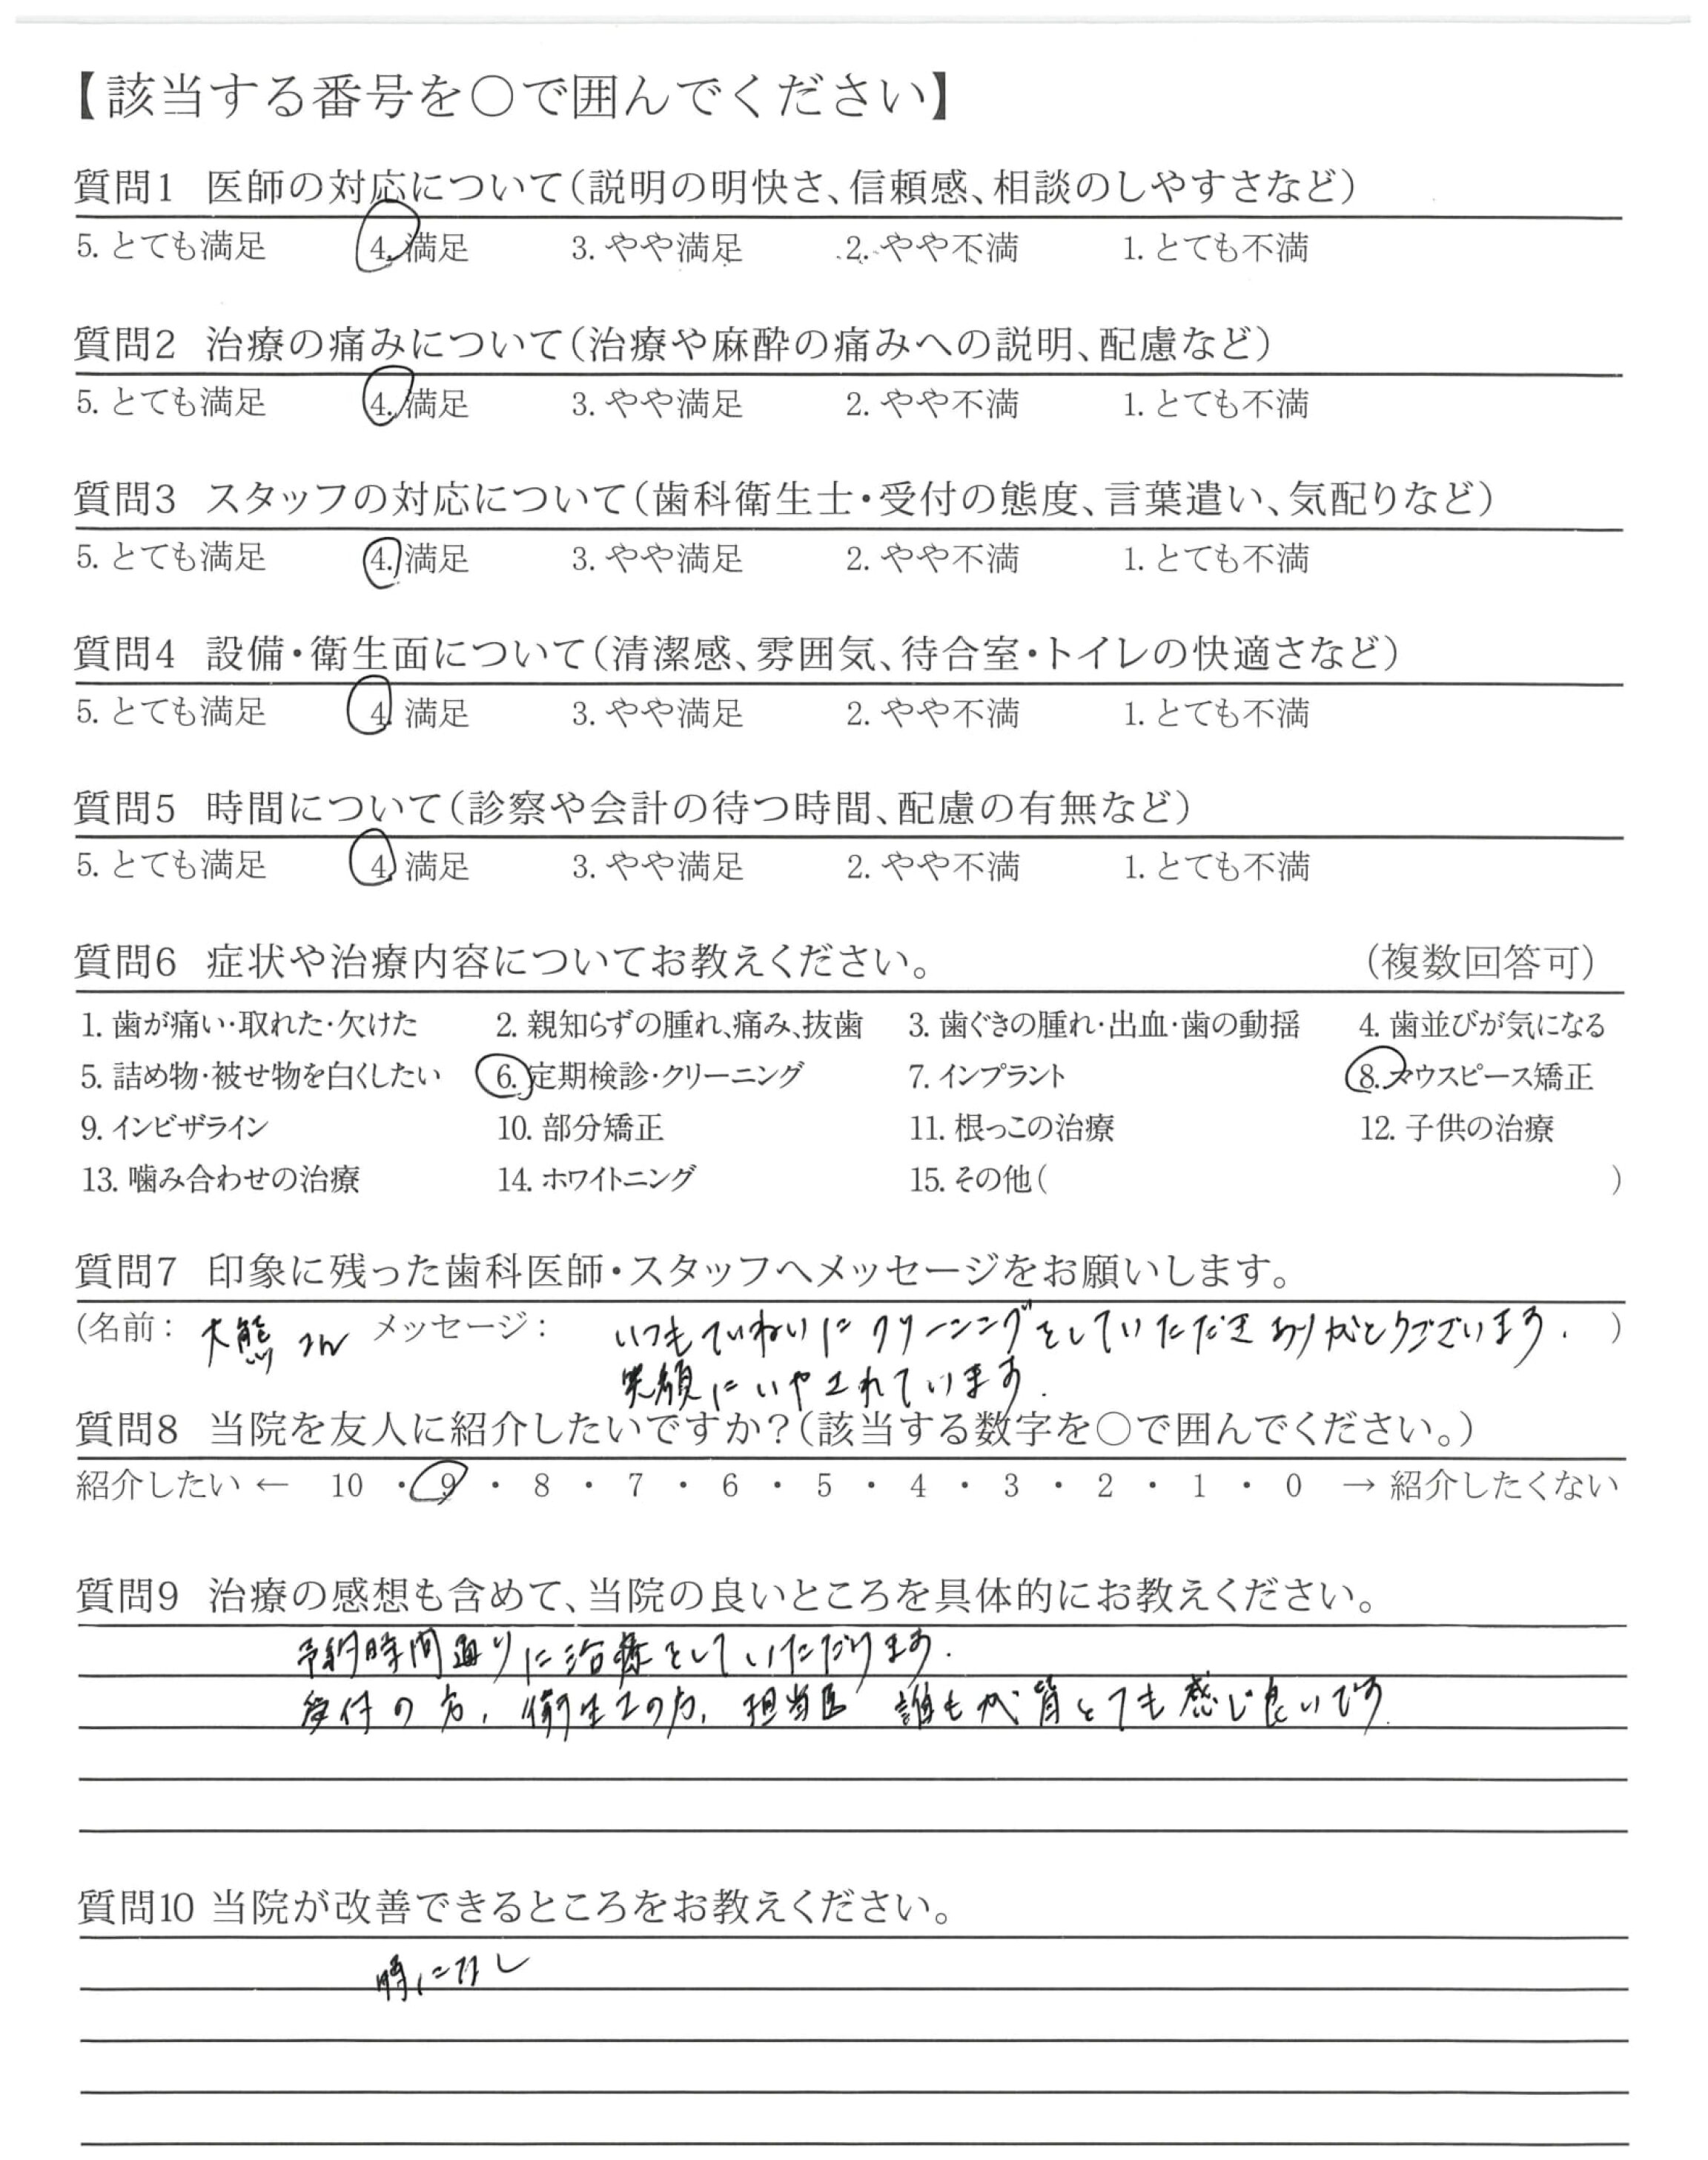 【該当する番号を○で囲んでください】
質問1 医師の対応について(説明の明快さ、信頼感、相談のしやすさなど)
5. とても満足 4. 満足 3. やや満足 2. やや不満 1. とても不満
質問2 治療の痛みについて(治療や麻酔の痛みへの説明、配慮など)
5. とても満足 4. 満足 3. やや満足 2. やや不満 1. とても不満
質問3 スタッフの対応について(歯科衛生士・受付の態度、言葉遣い、気配りなど)
5. とても満足 4. 満足 3. やや満足 2. やや不満 1. とても不満
質問4 設備・衛生面について(清潔感、雰囲気、待合室・トイレの快適さなど)
5. とても満足 4. 満足 3. やや満足 2. やや不満 1. とても不満
質問5 時間について(診察や会計の待つ時間、配慮の有無など)
5. とても満足 4. 満足 3. やや満足 2. やや不満 1. とても不満
質問6 症状や治療内容についてお教えください。 (複数回答可)
1. 歯が痛い・取れた・欠けた 2. 親知らずの腫れ、痛み、抜歯 3. 歯ぐきの腫れ・出血・歯の動揺 4. 歯並びが気になる
5. 詰め物・被せ物を白くしたい 6. 定期検診・クリーニング 7. インプラント 8. マウスピース矯正
9. インビザライン 10. 部分矯正 11. 根っこの治療 12. 子供の治療
13. 噛み合わせの治療 14. ホワイトニング 15. その他( )
質問7 印象に残った歯科医師・スタッフへメッセージをお願いします。
(名前: 大熊さん メッセージ: いつもていねいにクリーニングをしていただきありがとうございます. )
笑顔にいやされています.
質問8 当院を友人に紹介したいですか?(該当する数字を○で囲んでください。)
紹介したい ← 10 ・ 9 ・ 8 ・ 7 ・ 6 ・ 5 ・ 4 ・ 3 ・ 2 ・ 1 ・ 0 → 紹介したくない
質問9 治療の感想も含めて、当院の良いところを具体的にお教えください。
予約時間通りに治療をしていただけます.
受付の方, 衛生士の方, 担当医 誰もが皆とても感じ良いです.
質問10 当院が改善できるところをお教えください。
特になし